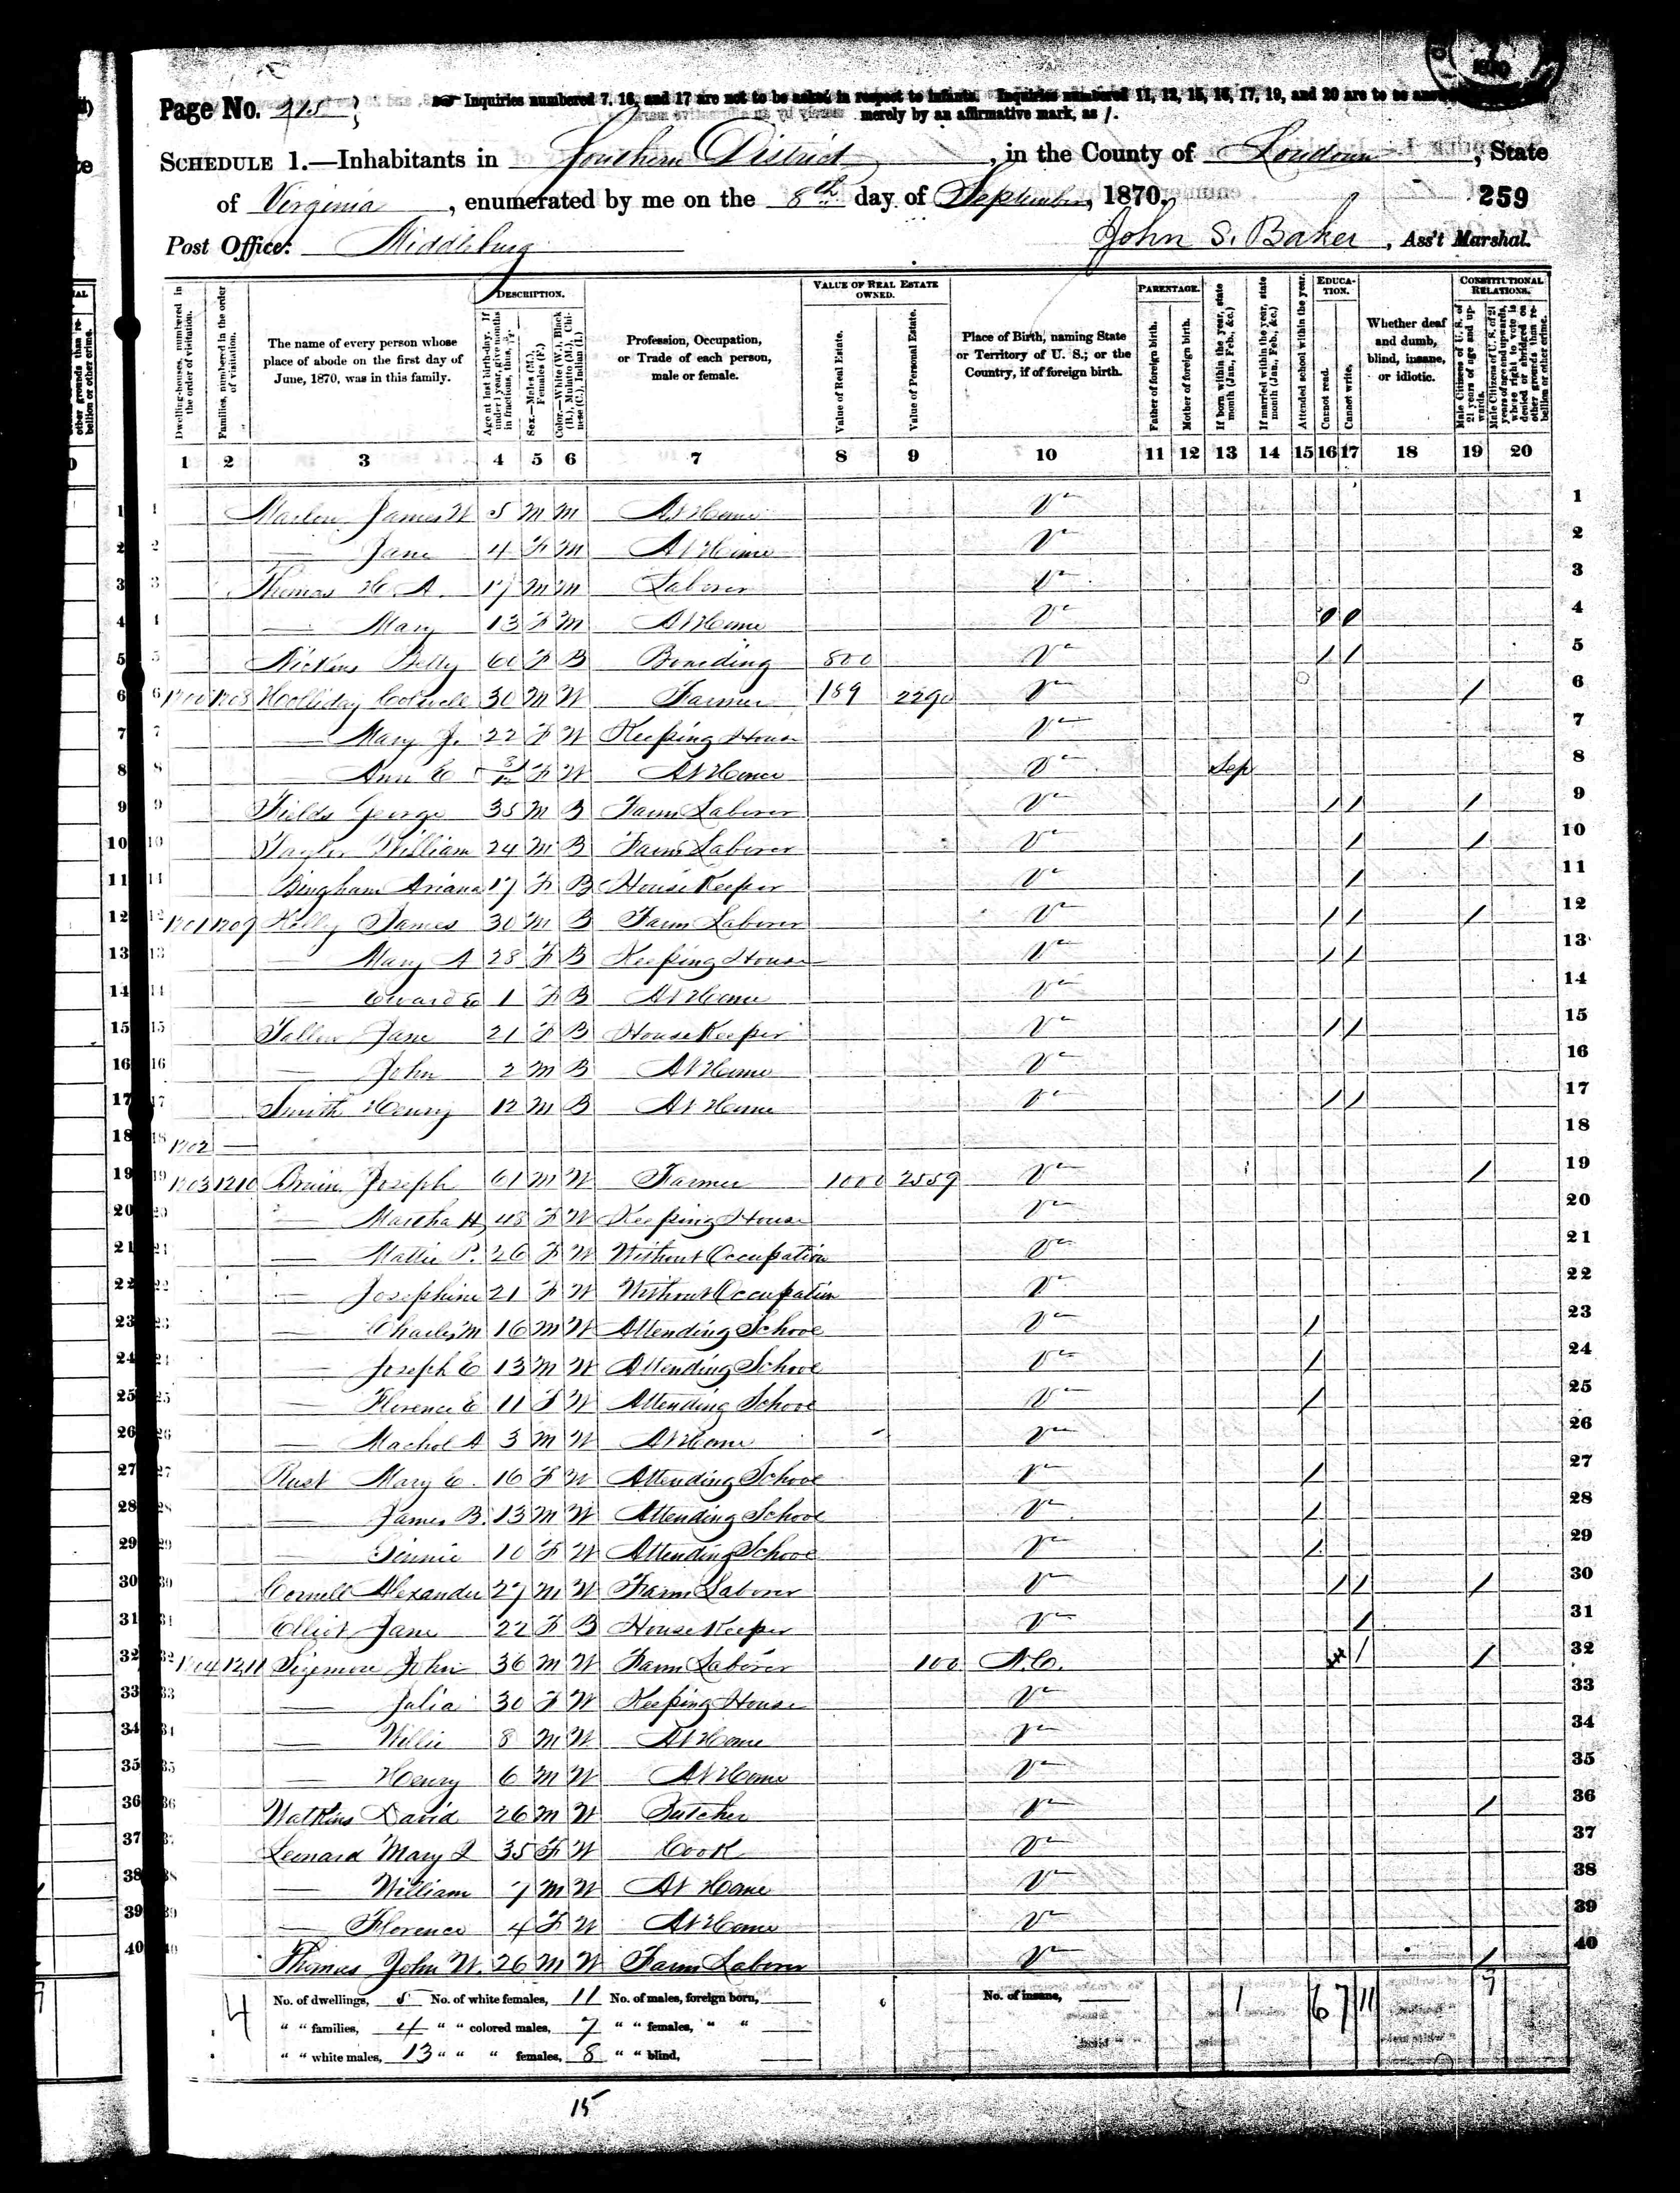 Page No. 215
Inquiries numbered 7, 16, and 17 are not to be asked in respect to infants. Inquiries numbered 11, 12, 15, 16, 17, 19, and 20 are to be
merely by an affirmative mark, as /.
SCHEDULE 1.—Inhabitants in Southern District, in the County of Loudoun, State
of Virginia, enumerated by me on the 8th day of September, 1870.
259
Post Office: Middleburg
John S. Baker, Ass't Marshal.
Dwelling-houses, numbered in the order of visitation.
Families, numbered in the order of visitation.
The name of every person whose place of abode on the first day of June, 1870, was in this family.
DESCRIPTION.
Age at last birth-day. If under 1 year, give months in fractions, thus, 3/12
Sex.—Males (M.), Females (F.)
Color.—White (W.), Black (B.), Mulatto (M.), Chinese (C.), Indian (I.)
Profession, Occupation, or Trade of each person, male or female.
VALUE OF REAL ESTATE OWNED.
Value of Real Estate.
Value of Personal Estate.
Place of Birth, naming State or Territory of U. S.; or the Country, if of foreign birth.
PARENTAGE.
Father of foreign birth.
Mother of foreign birth.
If born within the year, state month (Jan., Feb., &c.)
If married within the year, state month (Jan., Feb., &c.)
Attended school within the year.
EDUCATION.
Cannot read.
Cannot write.
Whether deaf and dumb, blind, insane, or idiotic.
CONSTITUTIONAL RELATIONS.
Male Citizens of U. S. of 21 years of age and upwards.
Male Citizens of U. S. of 21 years of age and upwards, whose right to vote is denied or abridged on other grounds than rebellion or other crime.
1 2 3 4 5 6 7 8 9 10 11 12 13 14 15 16 17 18 19 20
1 James W 5 M M At Home Va
2 — Jane 4 F M At Home Va
3 Thomas H A. 17 M M Laborer Va
4 — Mary 13 F M At Home Va
5 Betty 60 F B 800 Va / /
6 1200 1208 Holliday 30 M W Farmer 189 2290 Va /
7 — Mary J. 22 F W Keeping House Va
8 — Ann E F W At Home Va Sep
9 Fields George 35 M B Farm Laborer Va / / /
10 Taylor William 24 M B Farm Laborer Va / /
11 Bingham Ariana 17 F B House Keeper Va /
12 1201 1209 Kelly James 30 M B Farm Laborer Va / / /
13 — Mary A 28 F B Keeping House Va / /
14 — 1 F B At Home Va
15 Jane 21 F B House Keeper Va / /
16 — John 2 M B At Home Va
17 Smith Henry 12 M B At Home Va / /
18 1202 —
19 1203 1210 Joseph 61 M W Farmer 1000 2559 Va /
20 — Martha H 48 F W Keeping House Va
21 — Mattie P. 26 F W Without Occupation Va
22 — Josephine 21 F W Without Occupation Va
23 — Charles M 16 M W Attending School Va /
24 — Joseph E 13 M W Attending School Va /
25 — Florence E 11 F W Attending School Va /
26 — A 3 M W At Home Va
27 Rust Mary E. 16 F W Attending School Va /
28 — James B. 13 M W Attending School Va /
29 — 10 F W Attending School Va /
30 Cornell Alexander 27 M W Farm Laborer Va / / /
31 Elliot Jane 22 F B House Keeper Va /
32 1204 1211 Sizemore John 36 M W Farm Laborer 100 N.C. / /
33 — Julia 30 F W Keeping House Va
34 — Willie 8 M W At Home Va
35 — Henry 6 M W At Home Va
36 Watkins David 26 M W Butcher Va /
37 Leonard Mary J 35 F W Cook Va
38 — William 7 M W At Home Va
39 — Florence 4 F W At Home Va
40 Thomas John W. 26 M W Farm Laborer Va /
No. of dwellings, 5 No. of white females, 11 No. of males, foreign born, No. of insane, 1 6 7 11 9
" " families, 4 " " colored males, 7 " " females, " "
" " white males, 13 " " " females, 8 " " blind,
4
15